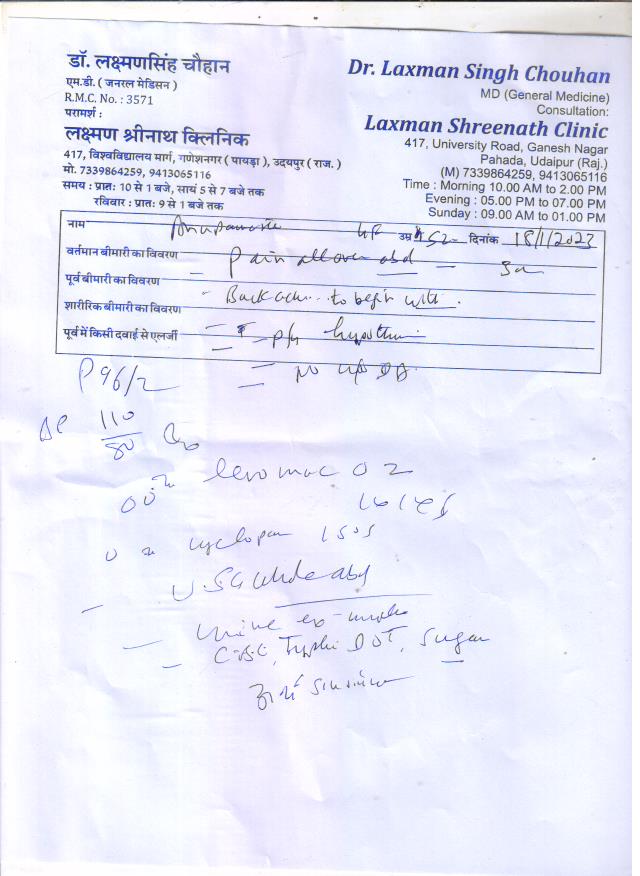 डॉ. लक्ष्मणसिंह चौहान
एम.डी. ( जनरल मेडिसन )
R.M.C. No. : 3571
परामर्श :
लक्ष्मण श्रीनाथ क्लिनिक
417, विश्वविद्यालय मार्ग, गणेशनगर ( पायड़ा ), उदयपुर ( राज. )
मो. 7339864259, 9413065116
समय : प्रातः 10 से 1 बजे, सायं 5 से 7 बजे तक
रविवार : प्रातः 9 से 1 बजे तक
Dr. Laxman Singh Chouhan
MD (General Medicine)
Consultation:
Laxman Shreenath Clinic
417, University Road, Ganesh Nagar
Pahada, Udaipur (Raj.)
(M) 7339864259, 9413065116
Time : Morning 10.00 AM to 2.00 PM
Evening : 05.00 PM to 07.00 PM
Sunday : 09.00 AM to 01.00 PM
नाम उम्र 52 दिनांक 18/1/2023
वर्तमान बीमारी का विवरण Pain all over abd
पूर्व बीमारी का विवरण
Backache to begin with.
शारीरिक बीमारी का विवरण
पूर्व में किसी दवाई से एलर्जी
P 96/2
110
80
levomac O Z
cyclopam
USG whole abd
urine
CBC, Typhi DOT, Sugar